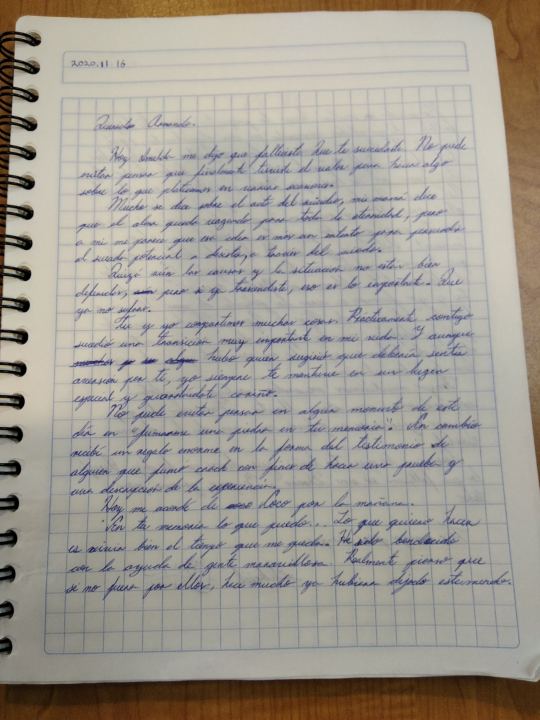 2020.11 16
Queridos Armando.
Hoy me dijo que falleciste. Que te suicidaste. No pude
evitar pensar que finalmente tuviste el valor para hacer algo
sobre lo que platicamos en varias ocasiones.
Mucho se dice sobre el acto del suicidio, mi mamá dice
que el alma queda vagando para toda la eternidad, pero
a mi me parece que esa idea es más un intento para persuadir
el suicida potencial a desistir, a traves del miedo.
Quizá aún las causas y la situación no estén bien
definidas, pero si ya trascendiste, eso es lo importante. Que
ya no sufras.
Tu y yo compartimos muchas cosas. Practicamente contigo
sucedió una transición muy importante en mi vida. Y aunque
hubo quien sugirió que debería sentir
aversion por ti, yo siempre te mantuve en un lugar
especial y guardandote cariño.
No pude evitar pensar en algun momento de este
día en "fumarme una piedra en tu memoria". En cambio
recibí un regalo enorme en la forma del testimonio de
alguien que fumó crack con fines de hacer una prueba y
una descripcion de la experiencia.
Hoy me acordé de Loco por la mañana.
En tu memoria lo que puedo... Lo que quiero hacer
es vivir bien el tiempo que me queda. He sido bendecido
con la ayuda de gente maravillosa. Realmente pienso que
si no fuera por ellos, hace mucho yo hubiera dejado este mundo.